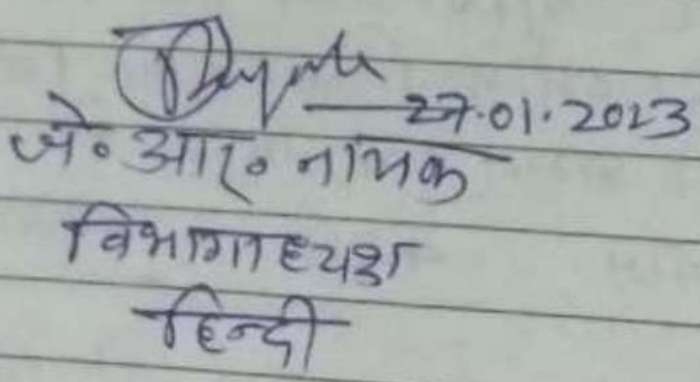 27.01.2023
जे॰ आर॰ नायक
विभागाध्यक्ष
हिन्दी